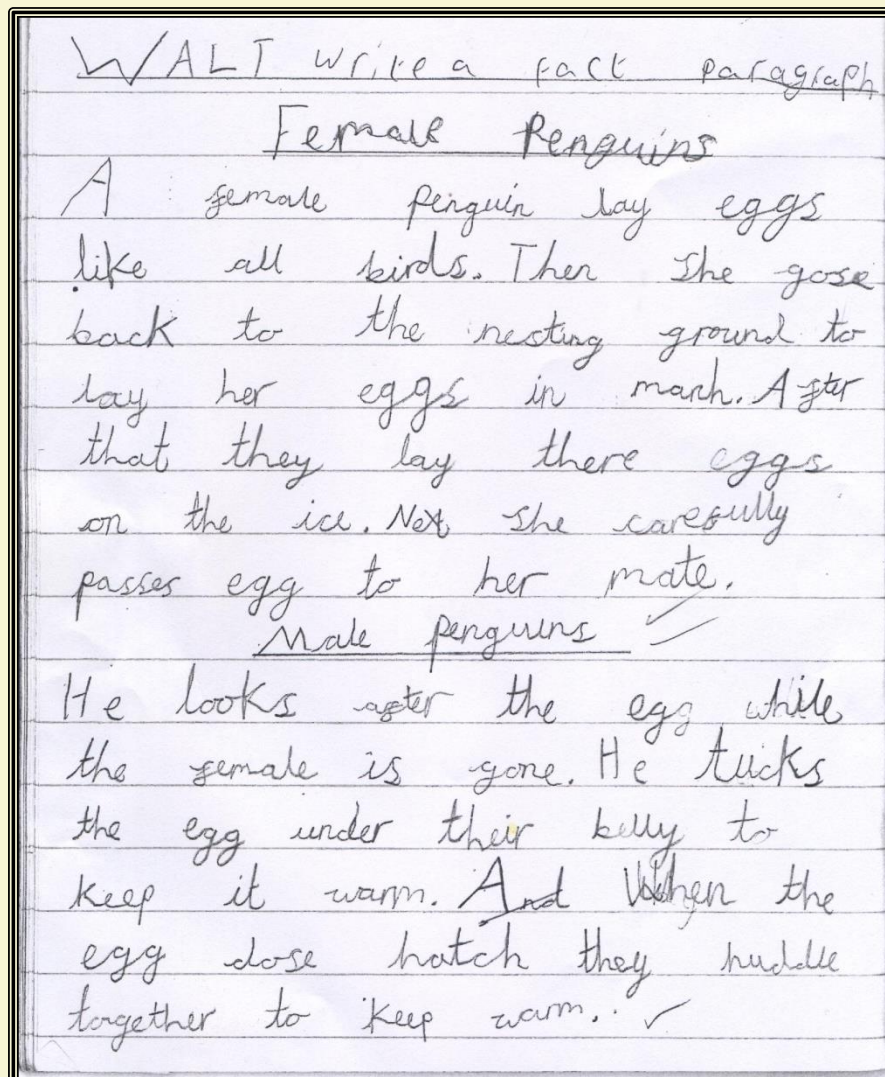 WALT write a fact paragraph
Female Penguins
A female penguin lay eggs
like all birds. Then she gose
back to the nesting ground to
lay her eggs in march. After
that they lay there eggs
on the ice. Next she carefully
passes egg to her mate.
Male penguins
He looks after the egg while
the female is gone. He tucks
the egg under their belly to
keep it warm. And When the
egg dose hatch they huddle
together to keep warm.